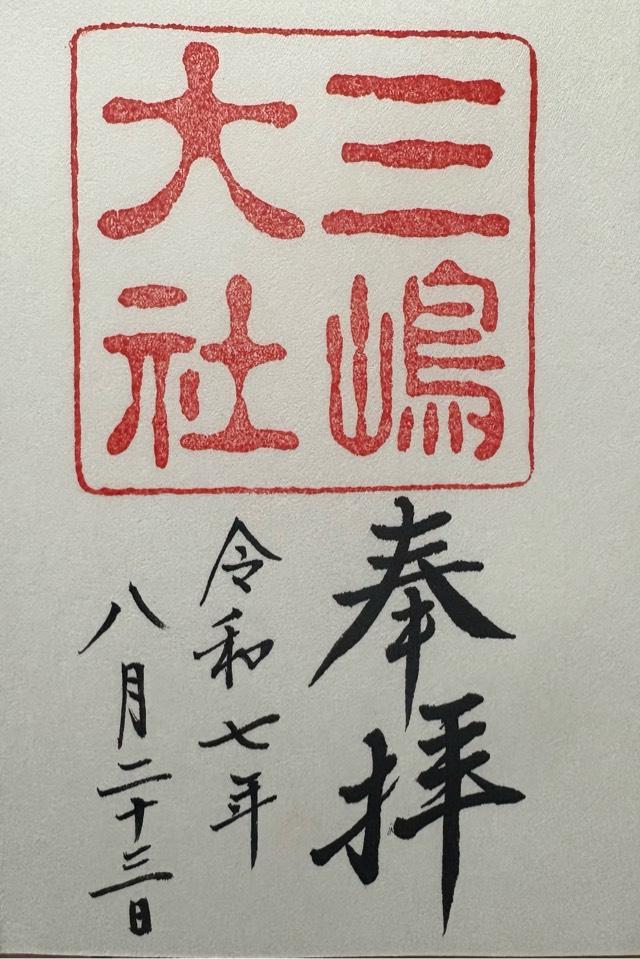 三嶋
大社
奉拝
令和七年
八月二十三日